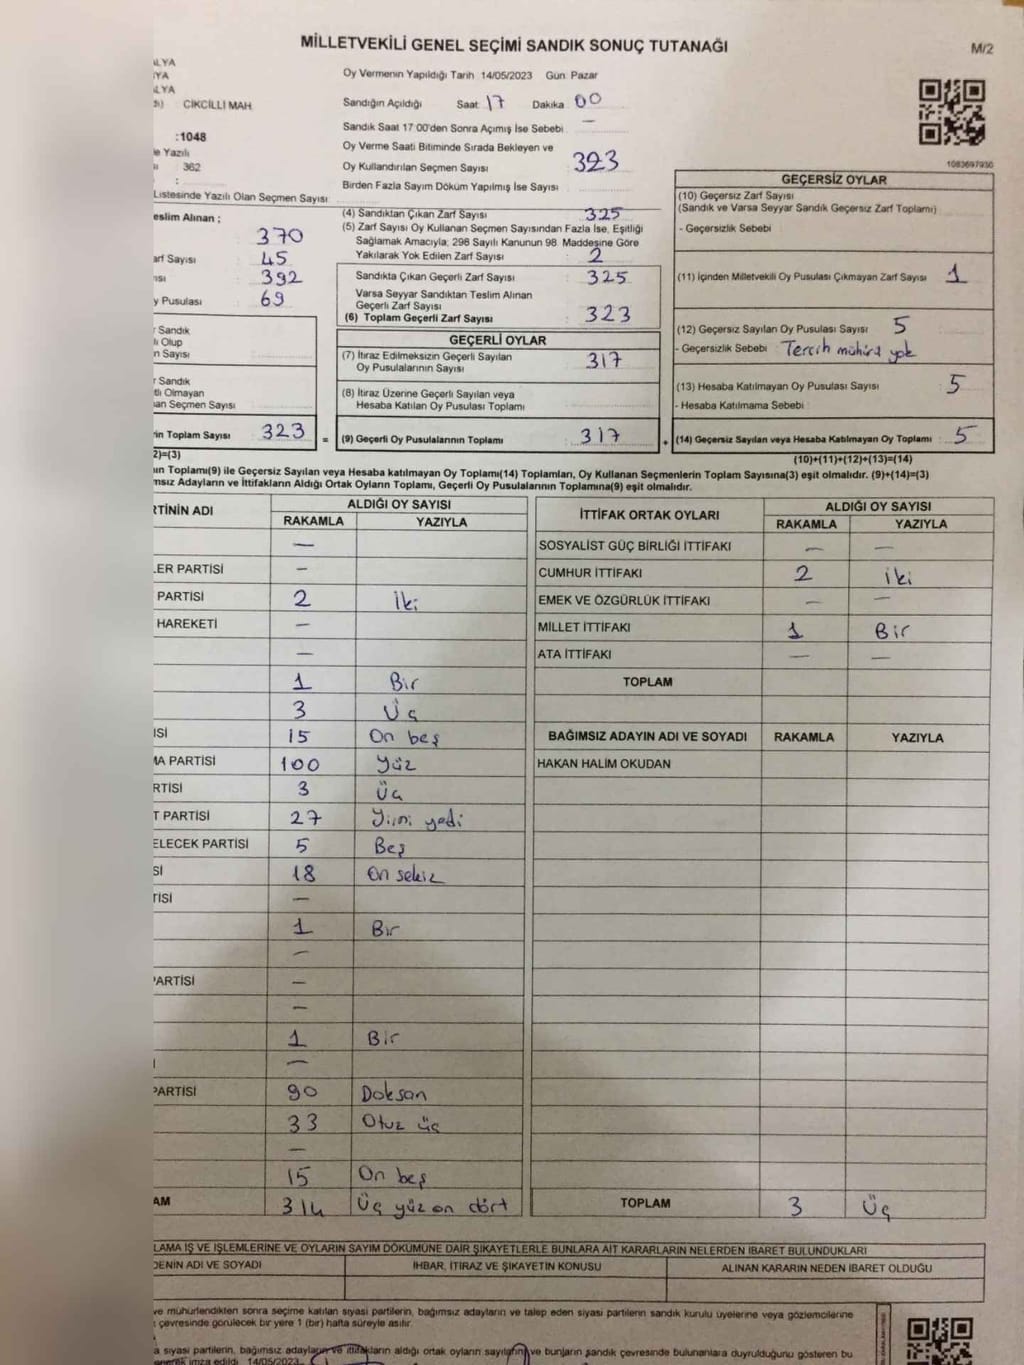 MİLLETVEKİLİ GENEL SEÇİMİ SANDIK SONUÇ TUTANAĞI
M/2
ALYA
Oy Vermenin Yapıldığı Tarih 14/05/2023 Gün Pazar
Sandığın Açıldığı Saat 17 Dakika 00
CİKCİLLİ MAH
Sandık Saat 17:00'den Sonra Açmış İse Sebebi —
:1048
Oy Verme Saati Bitiminde Sırada Bekleyen ve
Oy Kullandırılan Seçmen Sayısı 323
e Yazılı
: 362
1083697930
Birden Fazla Sayım Döküm Yapılmış İse Sayısı
Listesinde Yazılı Olan Seçmen Sayısı
eslim Alınan :
370
arf Sayısı 45
ısı 392
y Pusulası 69
r Sandık
lı Olup
n Sayısı
r Sandık
tlı Olmayan
an Seçmen Sayısı
ın Toplam Sayısı 323 =
2)=(3)
(4) Sandıktan Çıkan Zarf Sayısı 325
(5) Zarf Sayısı Oy Kullanan Seçmen Sayısından Fazla İse, Eşitliği
Sağlamak Amacıyla; 298 Sayılı Kanunun 98. Maddesine Göre
Yakılarak Yok Edilen Zarf Sayısı 2
Sandıkta Çıkan Geçerli Zarf Sayısı 325
Varsa Seyyar Sandıktan Teslim Alınan
Geçerli Zarf Sayısı
(6) Toplam Geçerli Zarf Sayısı 323
GEÇERLİ OYLAR
(7) İtiraz Edilmeksizin Geçerli Sayılan
Oy Pusulalarının Sayısı 317
(8) İtiraz Üzerine Geçerli Sayılan veya
Hesaba Katılan Oy Pusulası Toplamı
(9) Geçerli Oy Pusulalarının Toplamı 317 +
GEÇERSİZ OYLAR
(10) Geçersiz Zarf Sayısı
(Sandık ve Varsa Seyyar Sandık Geçersiz Zarf Toplamı)
- Geçersizlik Sebebi
(11) İçinden Milletvekili Oy Pusulası Çıkmayan Zarf Sayısı 1
(12) Geçersiz Sayılan Oy Pusulası Sayısı 5
- Geçersizlik Sebebi Tercih mührü yok
(13) Hesaba Katılmayan Oy Pusulası Sayısı 5
- Hesaba Katılmama Sebebi
(14) Geçersiz Sayılan veya Hesaba Katılmayan Oy Toplamı : 5
(10)+(11)+(12)+(13)=(14)
ın Toplamı(9) ile Geçersiz Sayılan veya Hesaba katılmayan Oy Toplamı(14) Toplamları, Oy Kullanan Seçmenlerin Toplam Sayısına(3) eşit olmalıdır. (9)+(14)=(3)
msız Adayların ve İttifakların Aldığı Ortak Oyların Toplamı, Geçerli Oy Pusulalarının Toplamına(9) eşit olmalıdır.
RTİNİN ADI ALDIĞI OY SAYISI
RAKAMLA YAZIYLA
—
LER PARTİSİ —
PARTİSİ 2 İki
HAREKETİ —
—
1 Bir
3 Üç
İSİ 15 On beş
MA PARTİSİ 100 Yüz
RTİSİ 3 Üç
T PARTİSİ 27 Yirmi yedi
ELECEK PARTİSİ 5 Beş
Sİ 18 On sekiz
TİSİ —
1 Bir
—
PARTİSİ —
—
1 Bir
—
PARTİSİ 90 Doksan
33 Otuz üç
—
15 On beş
AM 314 Üç yüz on dört
İTTİFAK ORTAK OYLARI ALDIĞI OY SAYISI
RAKAMLA YAZIYLA
SOSYALİST GÜÇ BİRLİĞİ İTTİFAKI — —
CUMHUR İTTİFAKI 2 İki
EMEK VE ÖZGÜRLÜK İTTİFAKI — —
MİLLET İTTİFAKI 1 Bir
ATA İTTİFAKI — —
TOPLAM
BAĞIMSIZ ADAYIN ADI VE SOYADI RAKAMLA YAZIYLA
HAKAN HALİM OKUDAN
TOPLAM 3 Üç
LAMA İŞ VE İŞLEMLERİNE VE OYLARIN SAYIM DÖKÜMÜNE DAİR ŞİKAYETLERLE BUNLARA AİT KARARLARIN NELERDEN İBARET BULUNDUKLARI
DENİN ADI VE SOYADI İHBAR, İTİRAZ VE ŞİKAYETİN KONUSU ALINAN KARARIN NEDEN İBARET OLDUĞU
ve mühürlendikten sonra seçime katılan siyasi partilerin, bağımsız adayların ve talep eden siyasi partilerin sandık kurulu üyelerine veya gözlemcilerine
çevresinde görülecek bir yere 1 (bir) hafta süreyle asılır.
a siyasi partilerin, bağımsız adayların ve ittifakların aldığı ortak oyların sayılarını ve bunların sandık çevresinde bulunanlara duyrulduğunu gösteren bu
imza edildi. 14/05/2023